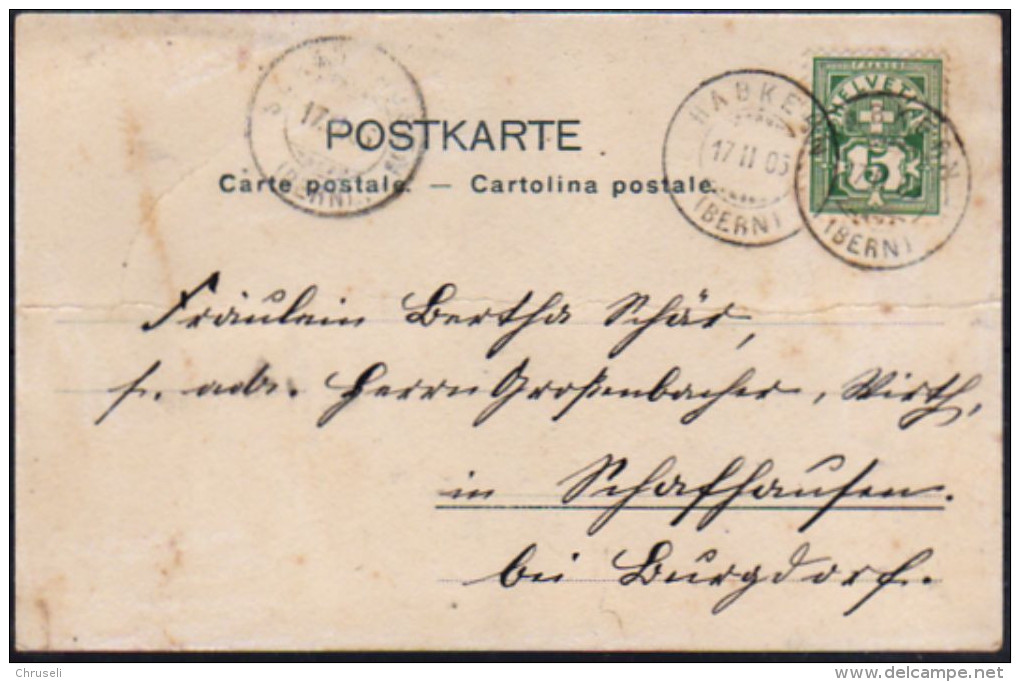 POSTKARTE
Carte postale. — Cartolina postale.
HABKERN
17 II 05
(BERN)
HABKERN
(BERN)
17.
(BERN)
FRANCO
HELVETIA
5
Fräulein Bertha Schär,
p. adr. Herrn Großenbacher, Wirth,
in Schafhausen.
bei Burgdorf.
Chruseli
www.delcampe.net